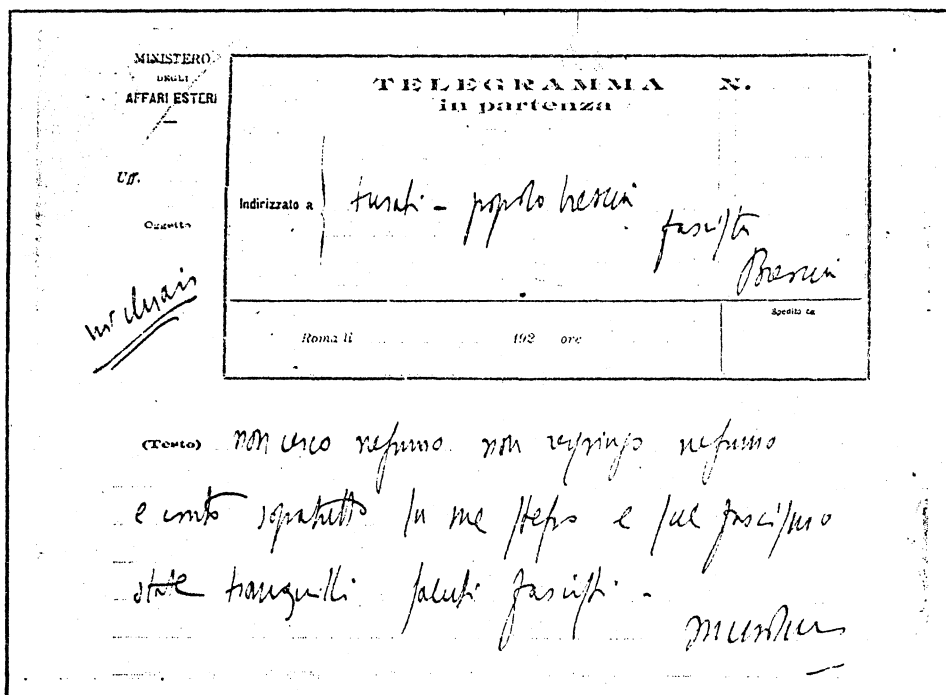 MINISTERO
DEGLI
AFFARI ESTERI
TELEGRAMMA N.
in partenza
Uff.
Oggetto
Indirizzato a
turati - popolo brescia
fascista
Brescia
Spedito ore
Roma li 192 ore
(Testo) non cerco nessuno non respingo nessuno
e conto sopratutto su me stesso e sul fascismo
state tranquilli saluti fascisti -
Mussolini